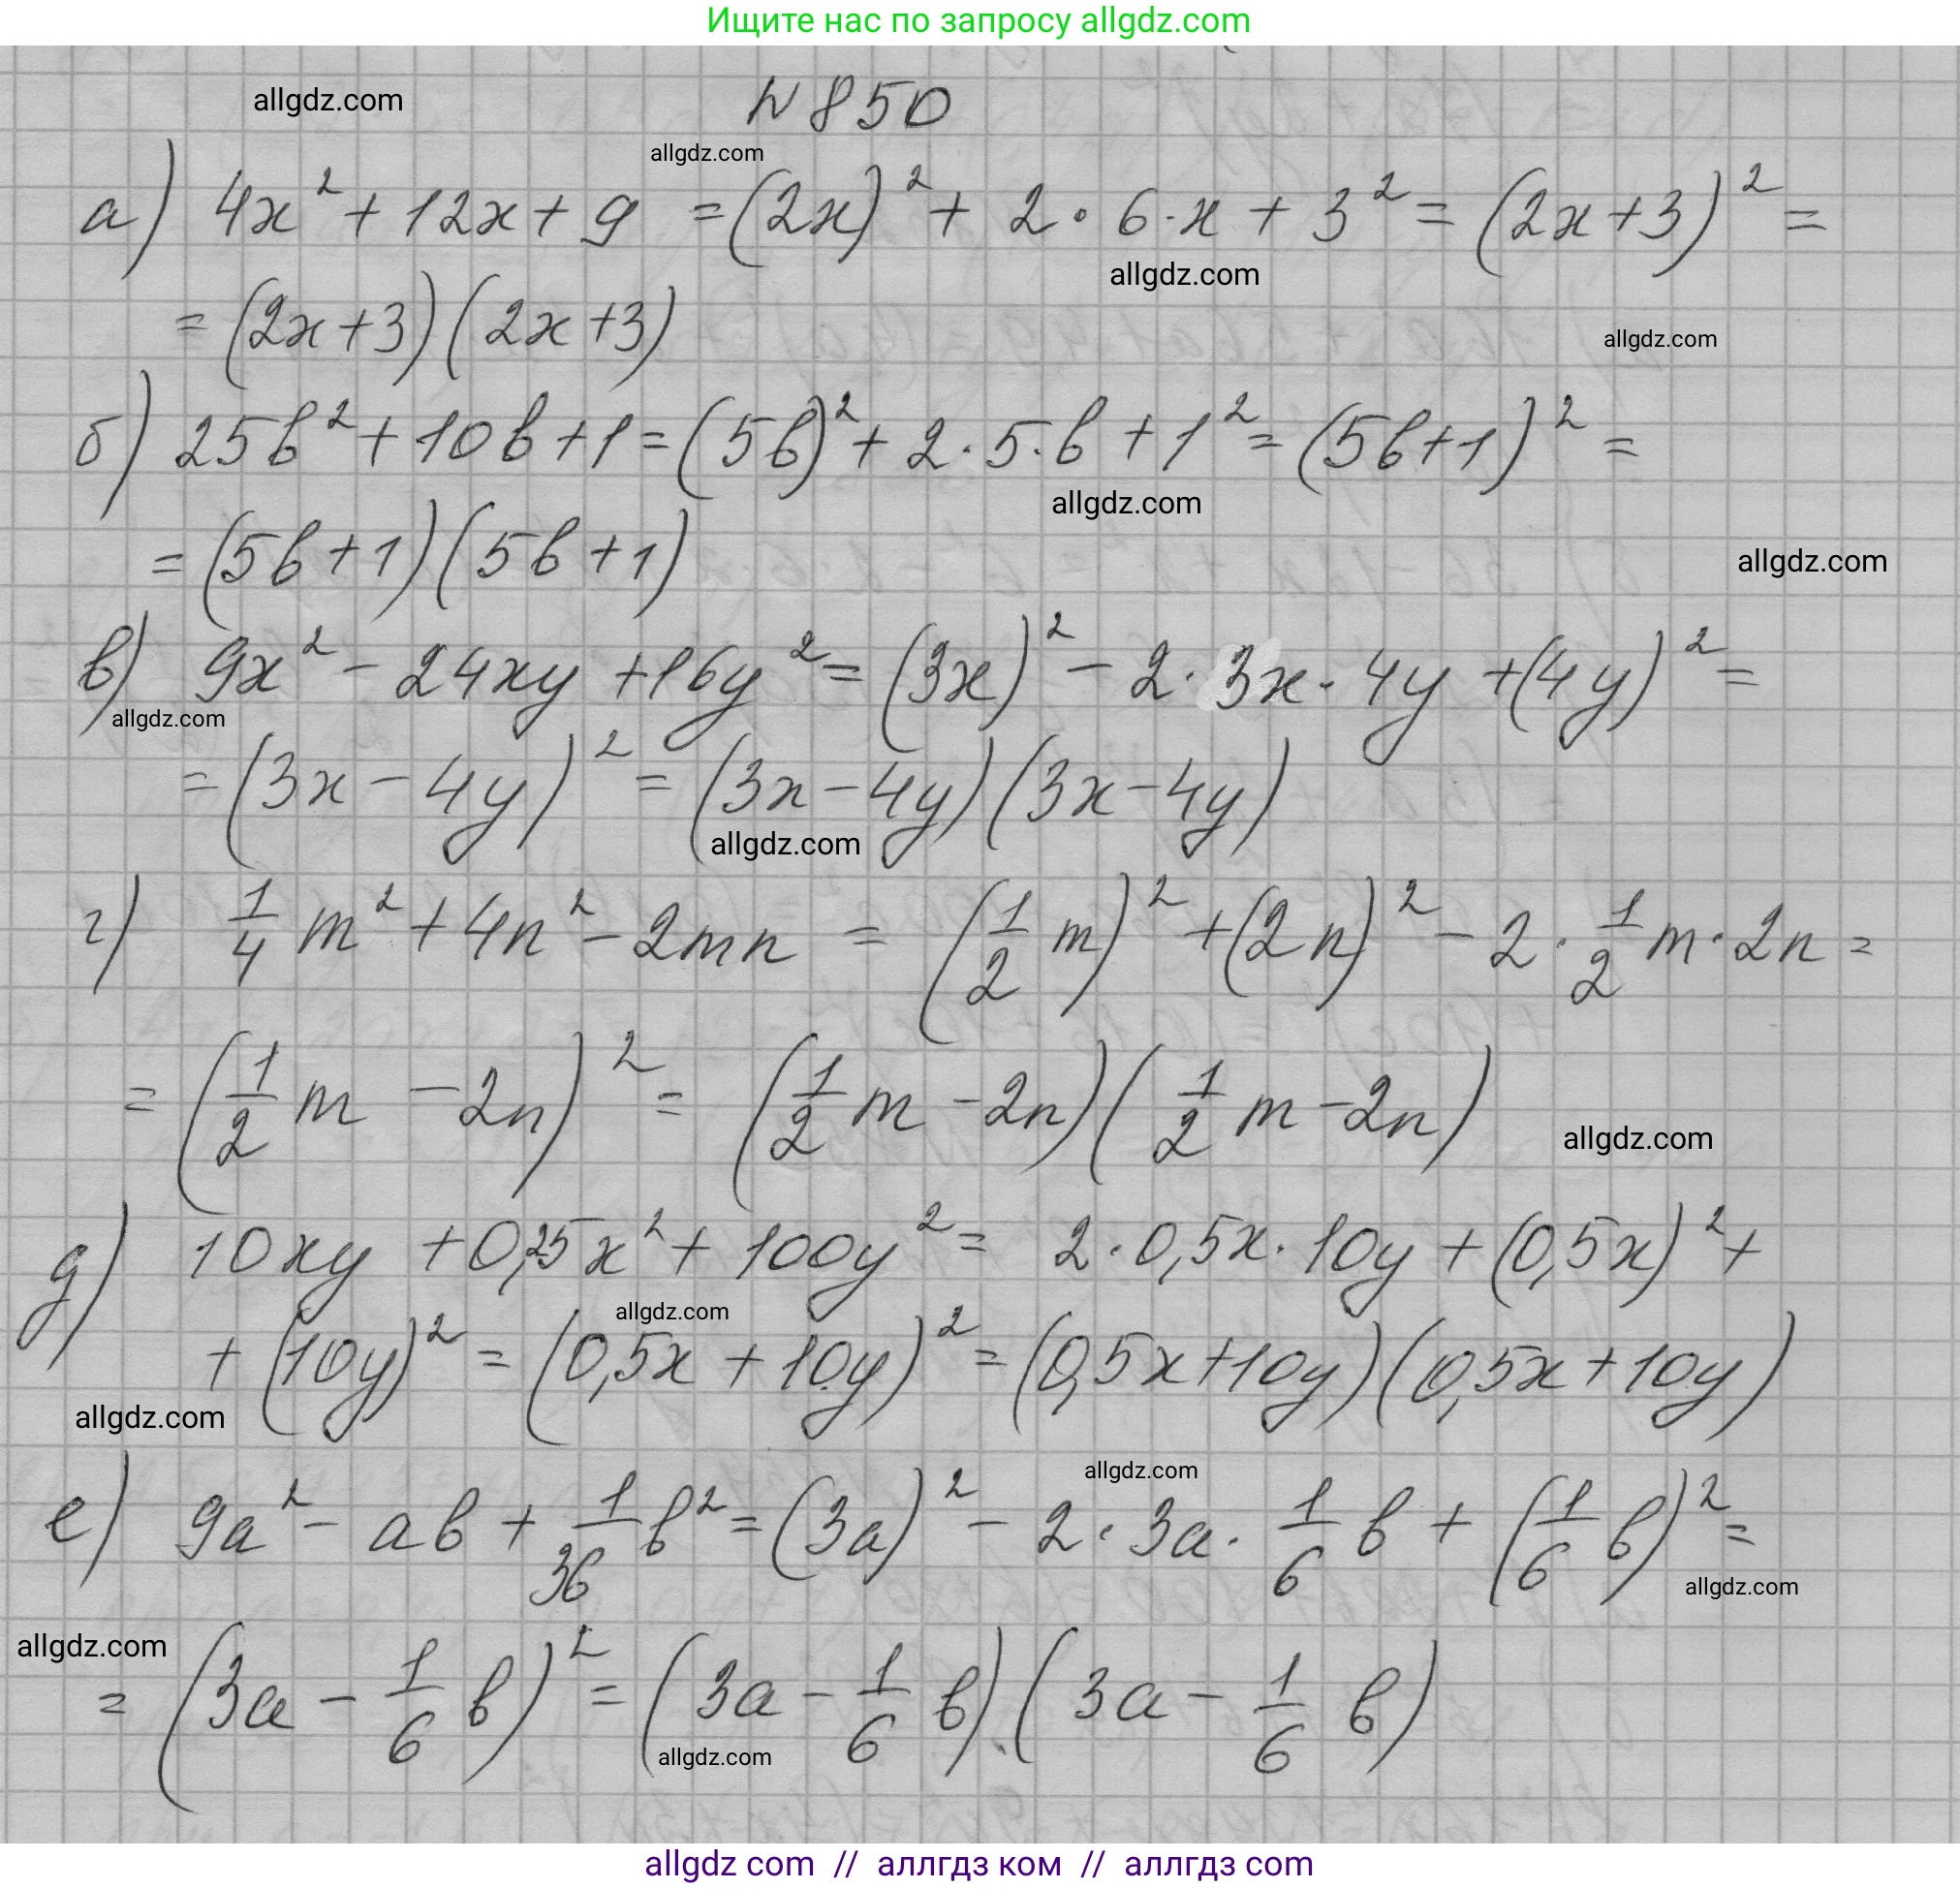 Ищите нас по запросу allgdz.com
allgdz.com
№ 850
allgdz.com
а) 4x² + 12x + 9 = (2x)² + 2 · 6 · x + 3² = (2x+3)² =
allgdz.com
= (2x+3)(2x+3)
allgdz.com
б) 25b² + 10b + 1 = (5b)² + 2 · 5 · b + 1² = (5b+1)² =
allgdz.com
= (5b+1)(5b+1)
allgdz.com
в) 9x² - 24xy + 16y² = (3x)² - 2 · 3x · 4y + (4y)² =
allgdz.com
= (3x - 4y)² = (3x - 4y)(3x - 4y)
allgdz.com
г) 1/4 m² + 4n² - 2mn = (1/2 m)² + (2n)² - 2 · 1/2 m · 2n =
= (1/2 m - 2n)² = (1/2 m - 2n)(1/2 m - 2n)
allgdz.com
д) 10xy + 0,25x² + 100y² = 2 · 0,5x · 10y + (0,5x)² +
allgdz.com
+ (10y)² = (0,5x + 10y)² = (0,5x + 10y)(0,5x + 10y)
allgdz.com
allgdz.com
е) 9a² - ab + 1/36 b² = (3a)² - 2 · 3a · 1/6 b + (1/6 b)² =
allgdz.com
allgdz.com
= (3a - 1/6 b)² = (3a - 1/6 b) · (3a - 1/6 b)
allgdz.com
allgdz com // аллгдз ком // аллгдз com